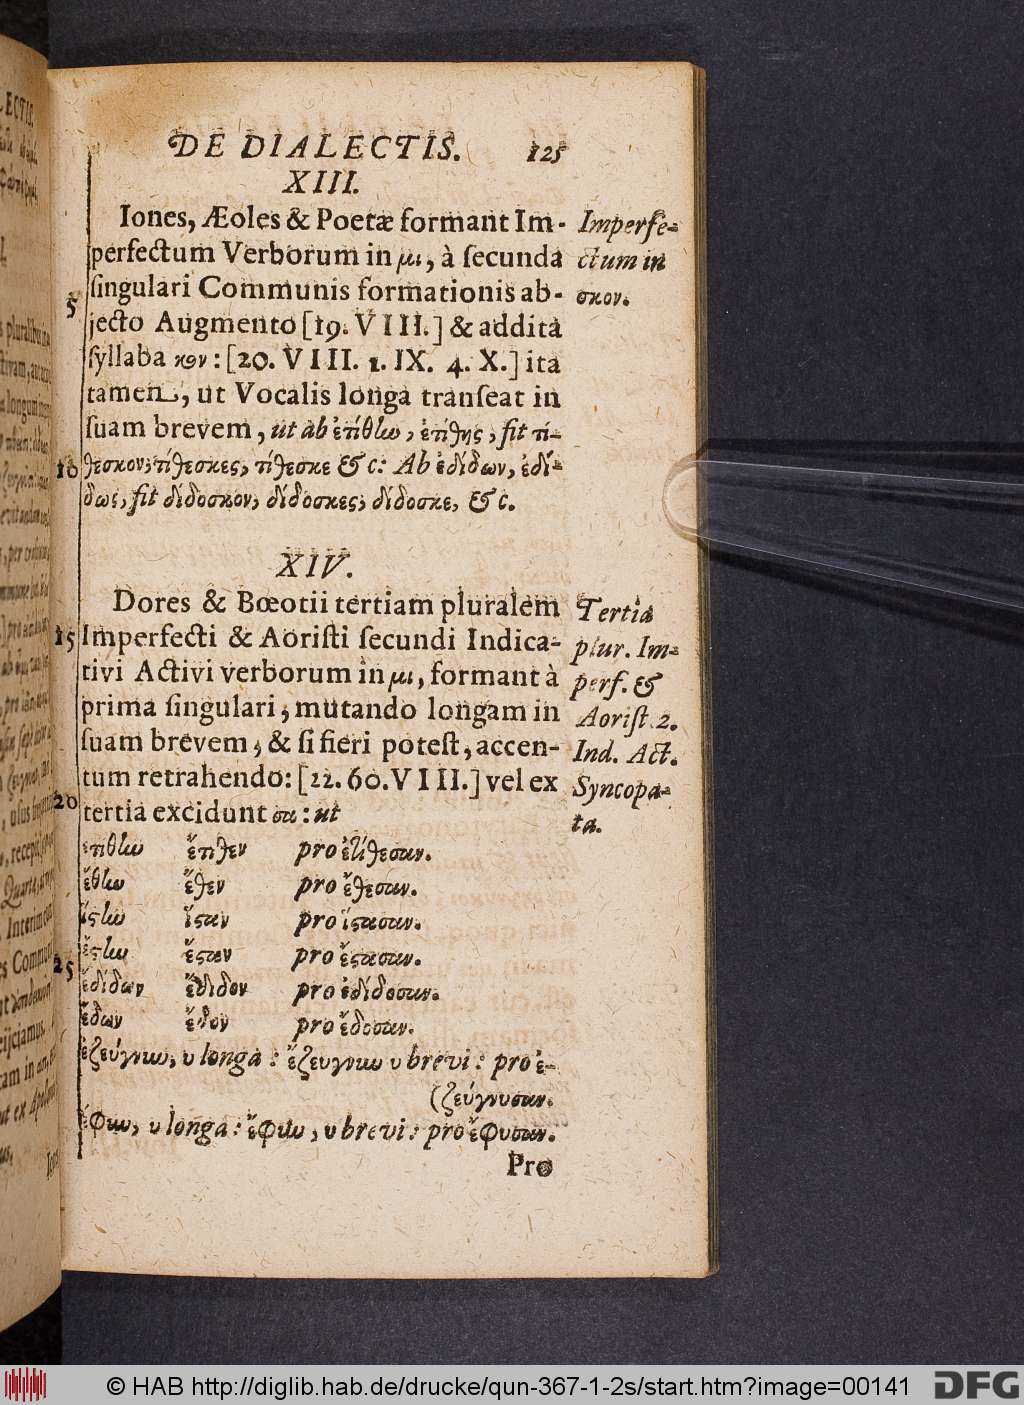 DE DIALECTIS. 125
XIII.
Iones, Æoles & Poetæ formant Im-
perfectum Verborum in μι, à ſecunda
ſingulari Communis formationis ab-
5
jecto Augmento [19. VIII.] & addita
ſyllaba κον: [20. VIII. 1. IX. 4. X.] ita
tamen, ut Vocalis longa tranſeat in
ſuam brevem, ut ab ἐτίθην, ἐτίθης, fit τί-
10 θεσκον, τίθεσκες, τίθεσκε & c: Ab ἐδίδων, ἐδί-
δως, fit δίδοσκον, δίδοσκες, δίδοσκε, & c.
Imperfe-
ctum in
σκον.
XIV.
Dores & Bœotii tertiam pluralem
15 Imperfecti & Aoriſti ſecundi Indica-
tivi Activi verborum in μι, formant à
prima ſingulari, mutando longam in
ſuam brevem, & ſi fieri poteſt, accen-
tum retrahendo: [22. 60. VIII.] vel ex
20 tertia excidunt σα: ut
Tertia
plur. Im-
perf. &
Aoriſt. 2.
Ind. Act.
Syncopa-
ta.
ἐτίθην ἔτιθεν pro ἐτίθεσαν.
ἔθην ἔθεν pro ἔθεσαν.
ἵστην ἵσταν pro ἵστασαν.
ἔστην ἔσταν pro ἔστασαν.
25
ἐδίδων ἔδιδον pro ἐδίδοσαν.
ἔδων ἔδον pro ἔδοσαν.
ἐζεύγνυν, υ longa: ἔζευγνυν υ brevi: pro ἐ-
(ζεύγνυσαν.
ἔφυν, υ longa: ἔφυν, υ brevi: pro ἔφυσαν.
Pro
© HAB http://diglib.hab.de/drucke/qun-367-1-2s/start.htm?image=00141
DFG